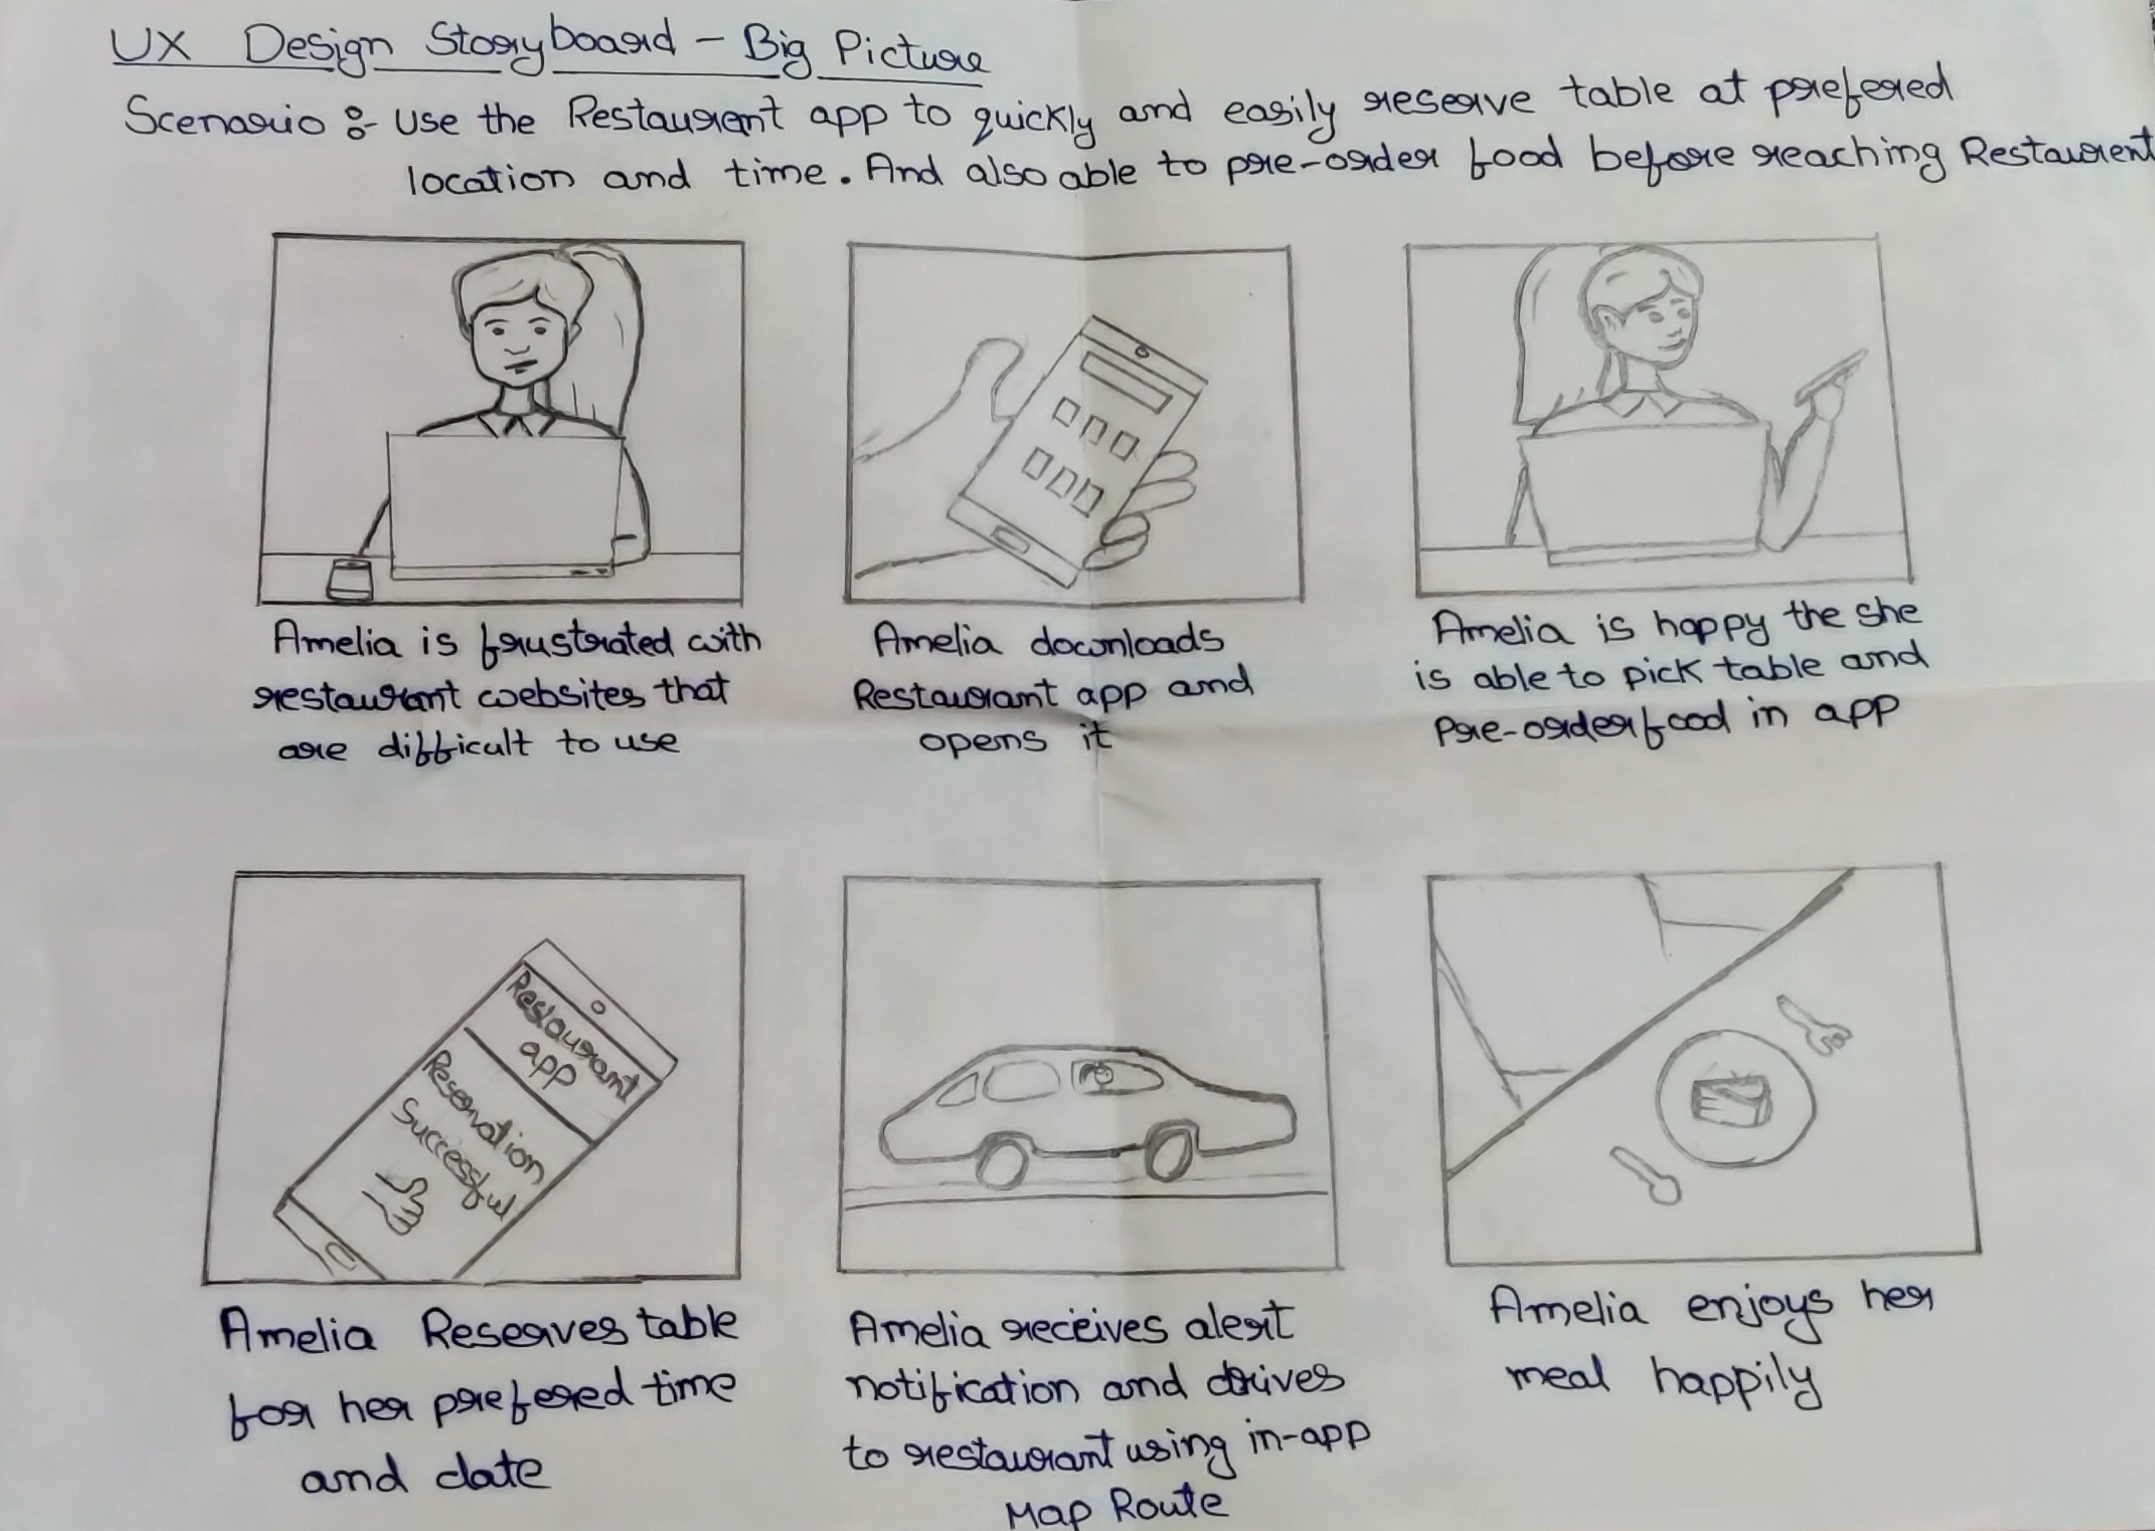 UX Design Storyboard - Big Picture
Scenario :- Use the Restaurent app to quickly and easily reserve table at prefered
location and time. And also able to pre-order food before reaching Restaurent
Amelia is frustrated with
restaurant websites that
are difficult to use
Amelia downloads
Restaurant app and
opens it
Amelia is happy the she
is able to pick table and
Pre-order food in app
Restaurant
app
Reservation
Successful
Amelia Reserves table
for her prefered time
and date
Amelia receives alert
notification and drives
to restaurant using in-app
Map Route
Amelia enjoys her
meal happily